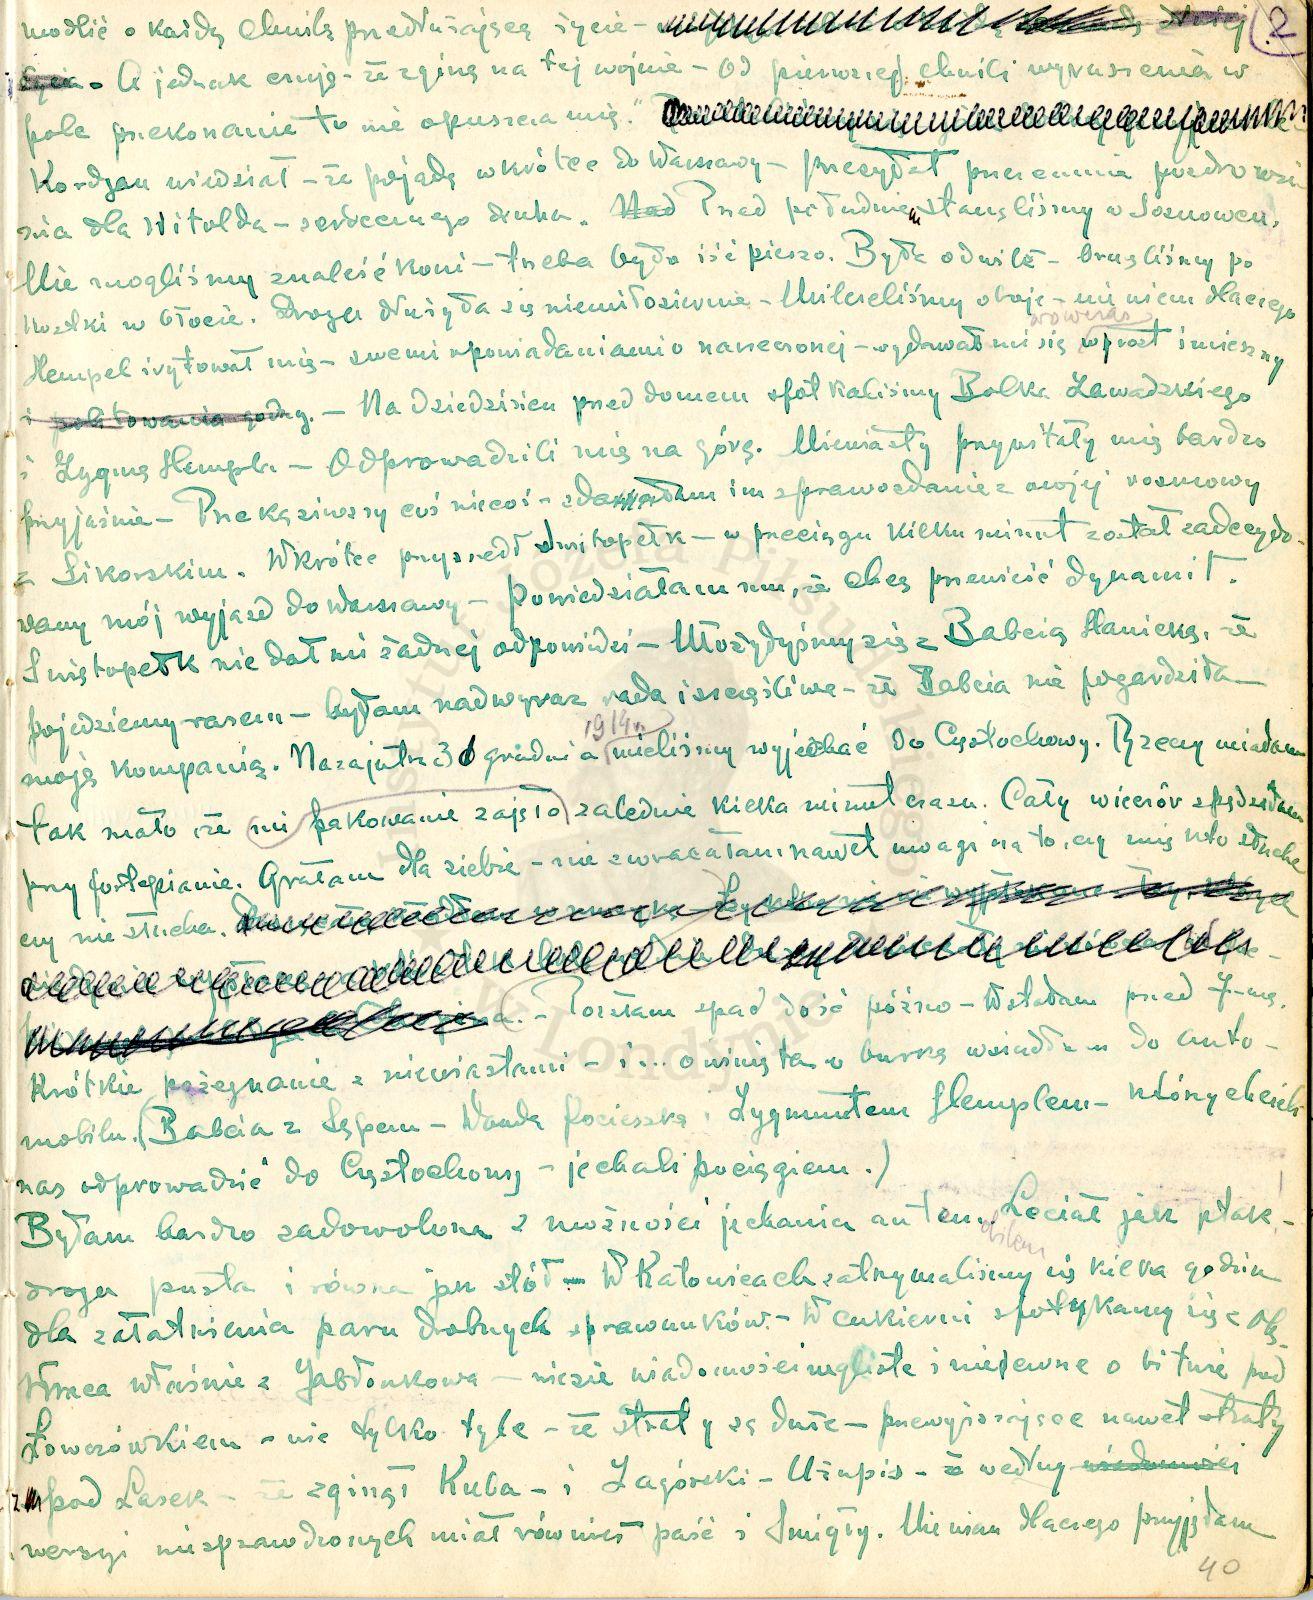 modlić o każdą chwilę przedłużającą życie –
2
A jednak czuję – że zginę na tej wojnie – Od pierwszej chwili wyruszenia w
pole przekonanie to nie opuszcza mię."
Kordjan wiedział – że pojadę wkrótce do Warszawy – przesyłał przezemnie pozdrowie
nia dla Witolda – serdecznego druha. Przed południem stanęliśmy w Sosnowcu.
Nie mogliśmy znaleść koni – trzeba było iść pieszo. Była odwilż – brnęliśmy po
kostki w błocie. Droga dłużyła się niemiłosiernie – Milczeliśmy oboje – nie wiem dlaczego
wówczas
Hempel irytował mię – swemi opowiadaniami o narzeczonej – wydawał mi się wprost śmieszny
i politowania godny. – Na dziedzińcu przed domem spotkaliśmy Bolka Zawadzkiego
i Zygmę Hempla – Odprowadzili mię na górę. Niewiasty przywitały mię bardzo
przyjaźnie – Przekąsiwszy coś niecoś – zdawałam im sprawozdanie z mojej rozmowy
z Sikorskim. Wkrótce przyszedł Świtopełk – w przeciągu kilku minut został zadecydo-
wany mój wyjazd do Warszawy – Powiedziałam mu, że chcę przewieść dynamit.
Świętopełk nie dał mi żadnej odpowiedzi – Ułożyłyśmy się z Babcią Hanicką, że
pojedziemy razem – byłam nadwyraz rada i szczęśliwa – że Babcia nie pogardziła
1914 r.
moją kompanią. Nazajutrz 31 grudnia mieliśmy wyjechać do Częstochowy. Rzeczy miałam
tak mało że mi pakowanie zajęło zaledwie kilka minut czasu. Cały wieczór spędziłam
przy fortepianie. Grałam dla siebie – nie zwracałam nawet uwagi na to, czy mię kto słucha
czy nie słucha.
– Poszłam spać dość późno – Wstałam przed 7-mą.
Krótkie pożegnanie z niewiastami – i... owinięta w burkę wsiadłam do auto-
mobilu. (Babcia z Sępem – Wandą Pocieszką i Zygmuntem Hemplem – którzy chcieli
nas odprowadzić do Częstochowy – jechali pociągiem.)
Byłam bardzo zadowolona z możności jechania autem. Leciał jak ptak –
droga pusta i równa jak stół – W Katowicach zatrzymaliśmy się kilka godzin
dla załatwienia paru drobnych sprawunków. – W cukierni spotykamy się z
właśnie z Jabłonkowa – niesie wiadomości mgliste i niepewne o bitwie pod
Łowczówkiem – nie tylko tyle – że straty są duże – przewyższające nawet straty
z pod Lasek – że zginął Kuba – i Zagórski – Użupis – że według wiadomości
wersji niesprawdzonych miał również paść i Śmigły. Nie wiem dlaczego przyjęłam
40
Instytut Józefa Piłsudskiego
w Londynie